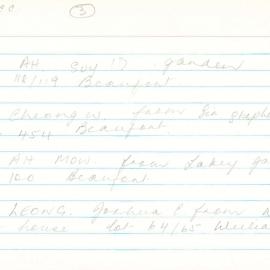 C.C. 3
AH. Suy garden
118/119 Beaufort
Cheong W. from Sir Stephe
454 Beaufort.
AH MOW. from Lakey ga
100 Beaufort
LEONG. Joshua C from
house lot 64/65 Willia